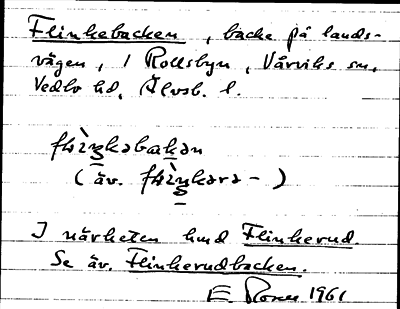 Flinkebacken, backe på lands-
vägen, i Rollsbyn, Vårviks sn,
Vedbo hd, Älvsb. l.
(äv.
I närheten hmd Flinkerud.
Se äv. Flinkerudbacken.
E. 1961